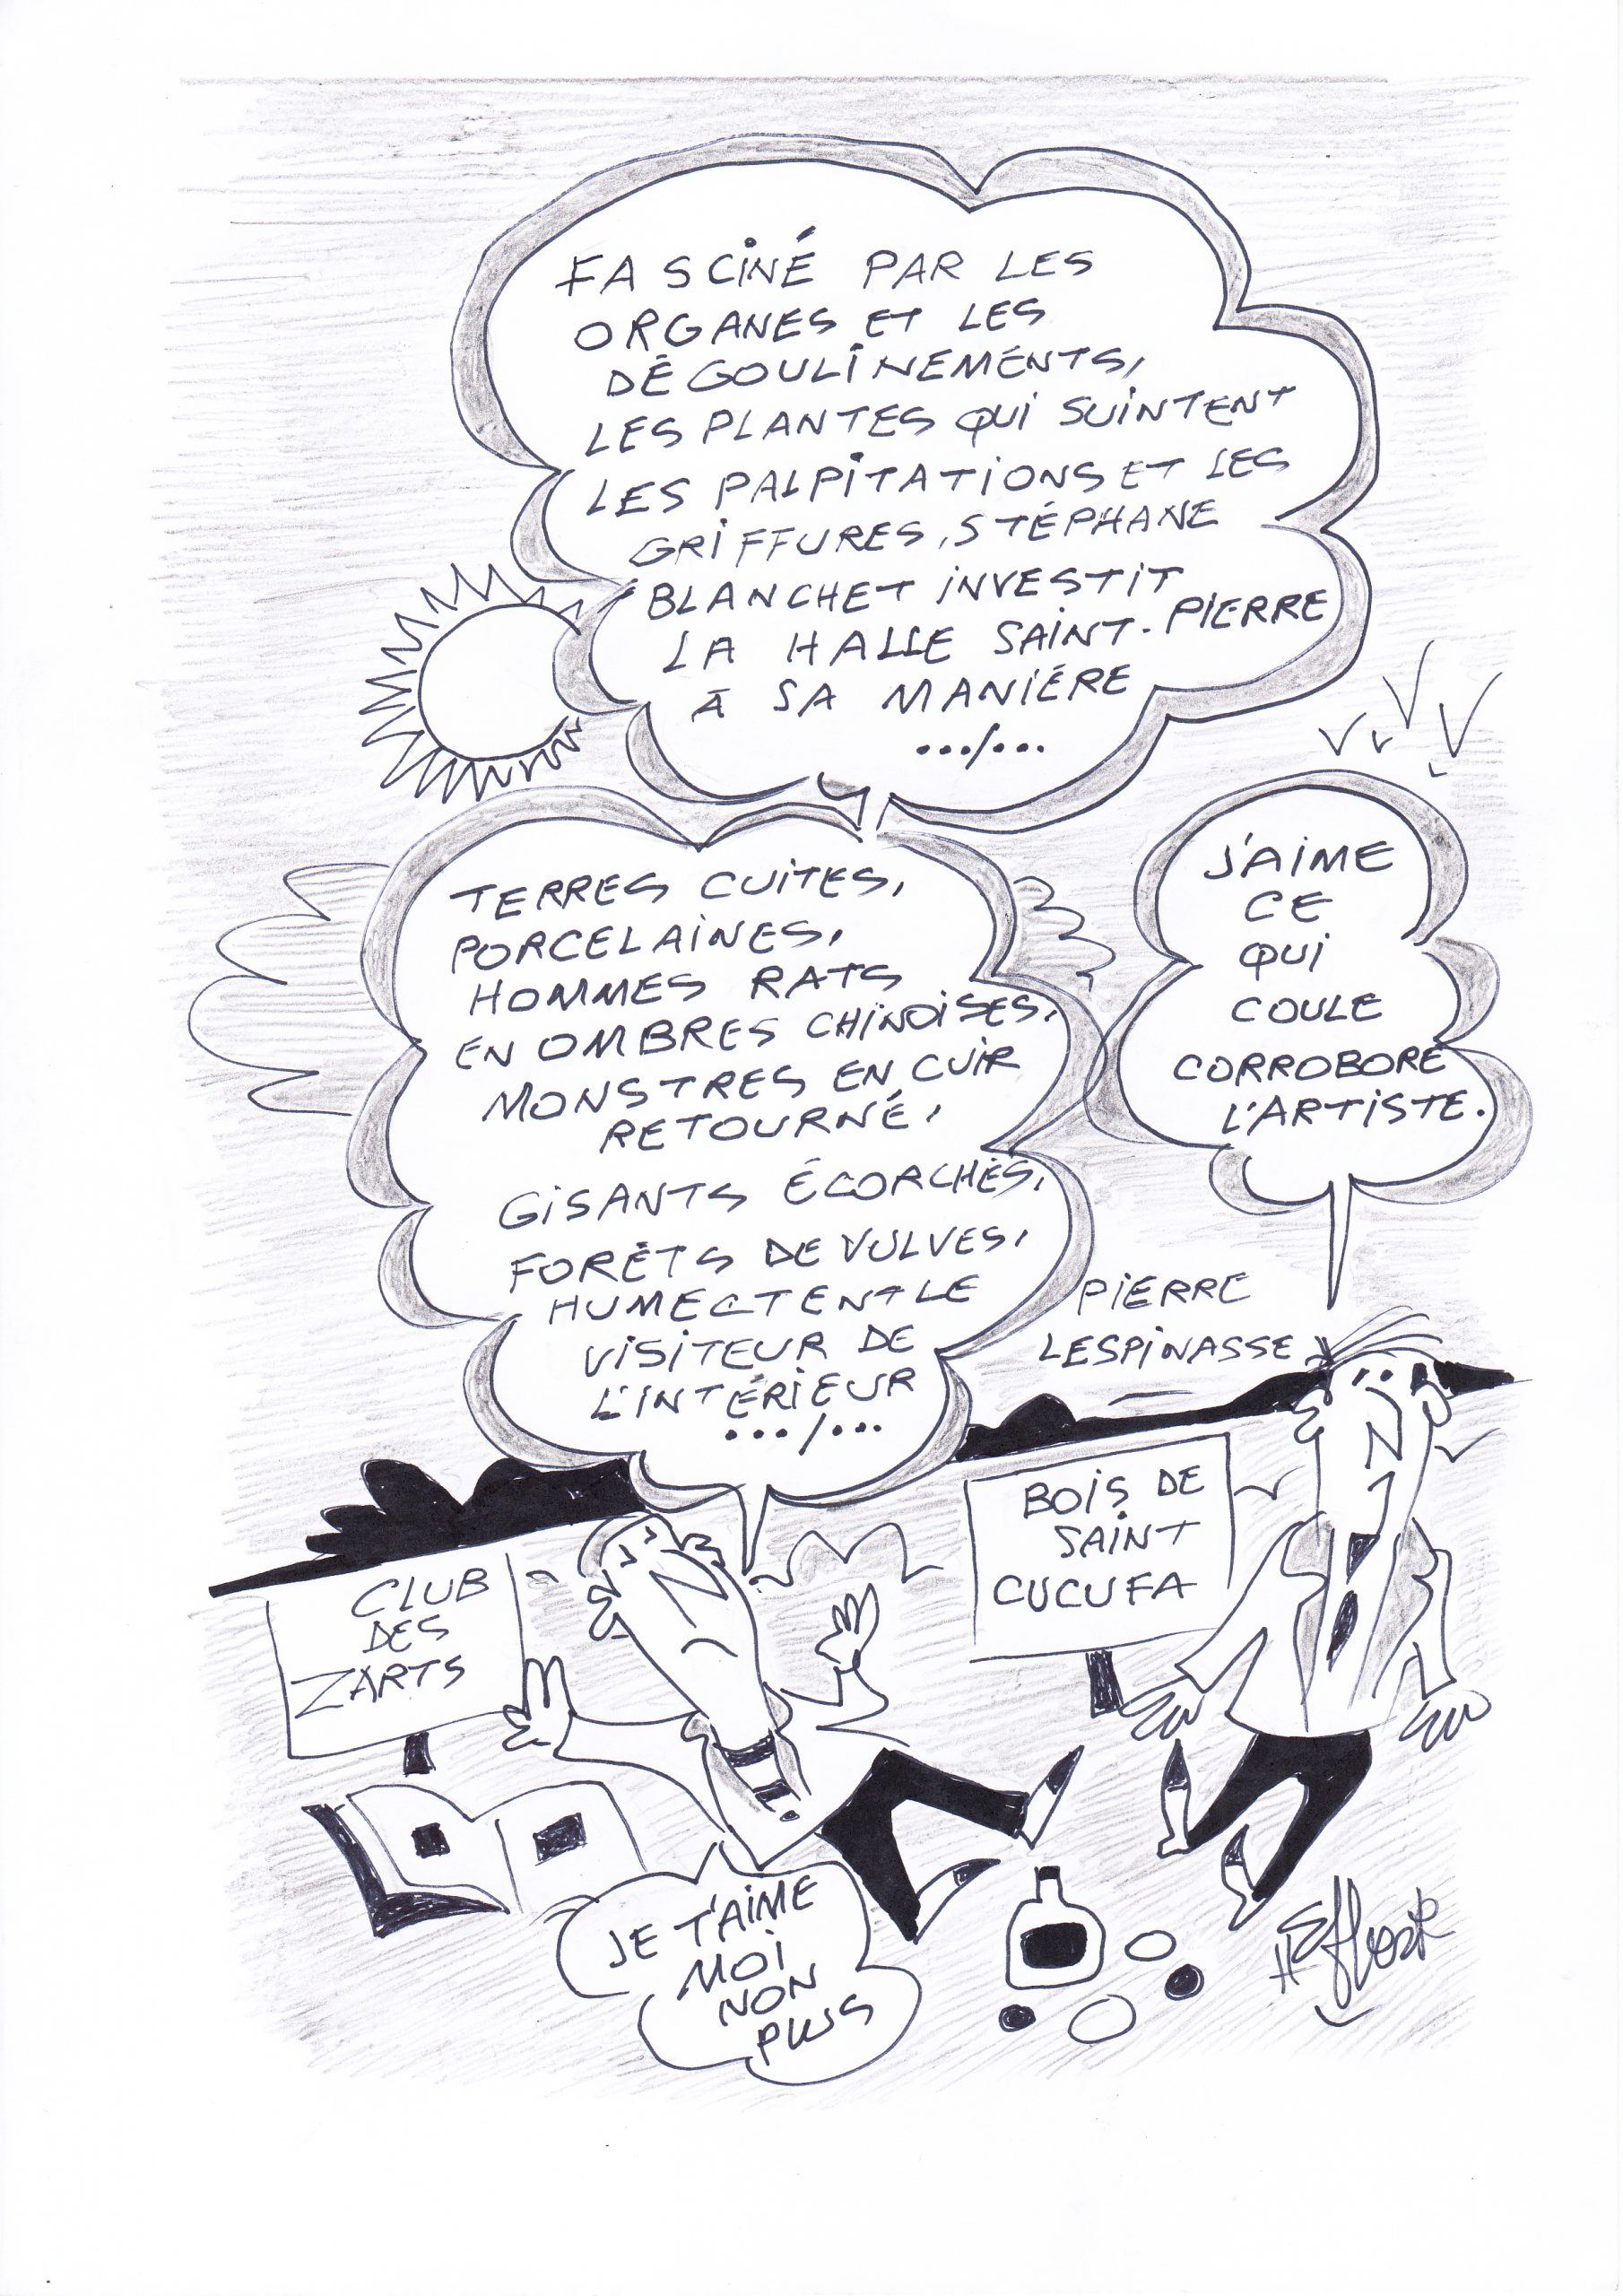 FASCINÉ PAR LES
ORGANES ET LES
DÉGOULINEMENTS,
LES PLANTES QUI SUINTENT
LES PALPITATIONS ET LES
GRIFFURES, STÉPHANE
BLANCHET INVESTIT
LA HALLE SAINT-PIERRE
À SA MANIÉRE
.../...
TERRES CUITES,
PORCELAINES,
HOMMES RATS
EN OMBRES CHINOISES,
MONSTRES EN CUIR
RETOURNÉ,
GISANTS ÉCORCHÉS,
FORÊTS DE VULVES,
HUMECTENT LE
VISITEUR DE
L'INTÉRIEUR
.../...
J'AIME
CE
QUI
COULE
CORROBORE
L'ARTISTE.
PIERRE
LESPINASSE
BOIS DE
SAINT
CUCUFA
CLUB
DES
ZARTS
JE T'AIME
MOI
NON
PLUS